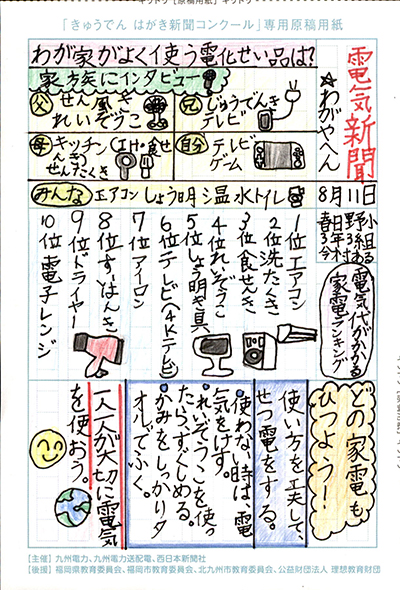 「きゅうでん はがき新聞コンクール」専用原稿用紙
電気新聞
☆わがやへん
8月11日
春日野小
3年3組
わが家がよく使う電化せい品は?
家族にインタビュー
父 せん風き
れいぞうこ
兄 じゅうでんき
テレビ
母 キッチン(IH・食せんき)
せんたくき
自分 テレビ
ゲーム
みんな エアコン しょう明 温水トイレ
電気代がかかる
家電ランキング
1位エアコン
2位洗たくき
3位食せんき
4位れいぞうこ
5位しょう明き具
6位テレビ(4Kテレビ)
7位アイロン
8位そうじき
9位ドライヤー
10位電子レンジ
どの家電も
ひつよう!
使い方を工夫して、
せつ電をする。
使わない時は、電
気をけす。
れいぞうこを使っ
たら、すぐしめる。
かみをしっかりタ
オルでふく。
一人一人が大切に電気
を使おう。
【主催】九州電力、九州電力送配電、西日本新聞社
【後援】福岡県教育委員会、福岡市教育委員会、北九州市教育委員会、公益財団法人 理想教育財団